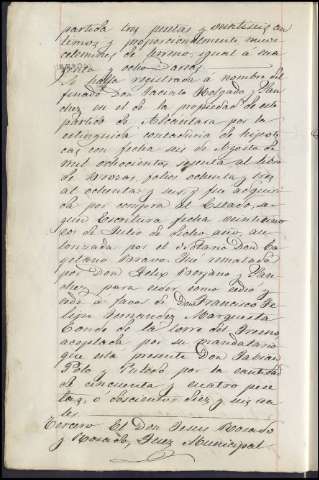 partida tres pesetas y ochenta y seis cen
timos, y proporcionalmente nueve
celemines, de primera, igual á cua
renta y ocho areas
Se halla registrada á nombre del
finado Don Jacinto Holgado y
en el de la propiedad de este
partido de Alcántara por la
estinguida contaduria de hipote
cas con fecha seis de Agosto de
mil ochocientos sesenta al libro
de Brozas, folios ochenta y tres
al ochenta y seis y fué adquiri
da por compra al Estado, se
gún Escritura fecha veinticinco
de Julio de dicho año, au
torizada por el Notario Don Ca
yetano Bravo. Fué rematada
por Don Felix Bejarano y
para ceder como cedió y
cede á favor de Don Francisco Fe
lipe Fernandez Marquesta
Conde de la Torre del Fresno
aceptada por su mandatario
que está presente Don Fabian
Polo y por la cantidad
de cincuenta y cuatro pese
tas, ó doscientos diez y seis rea
les
Tercero El Don Jesus Rosado
y Rosado, Juez Municipal